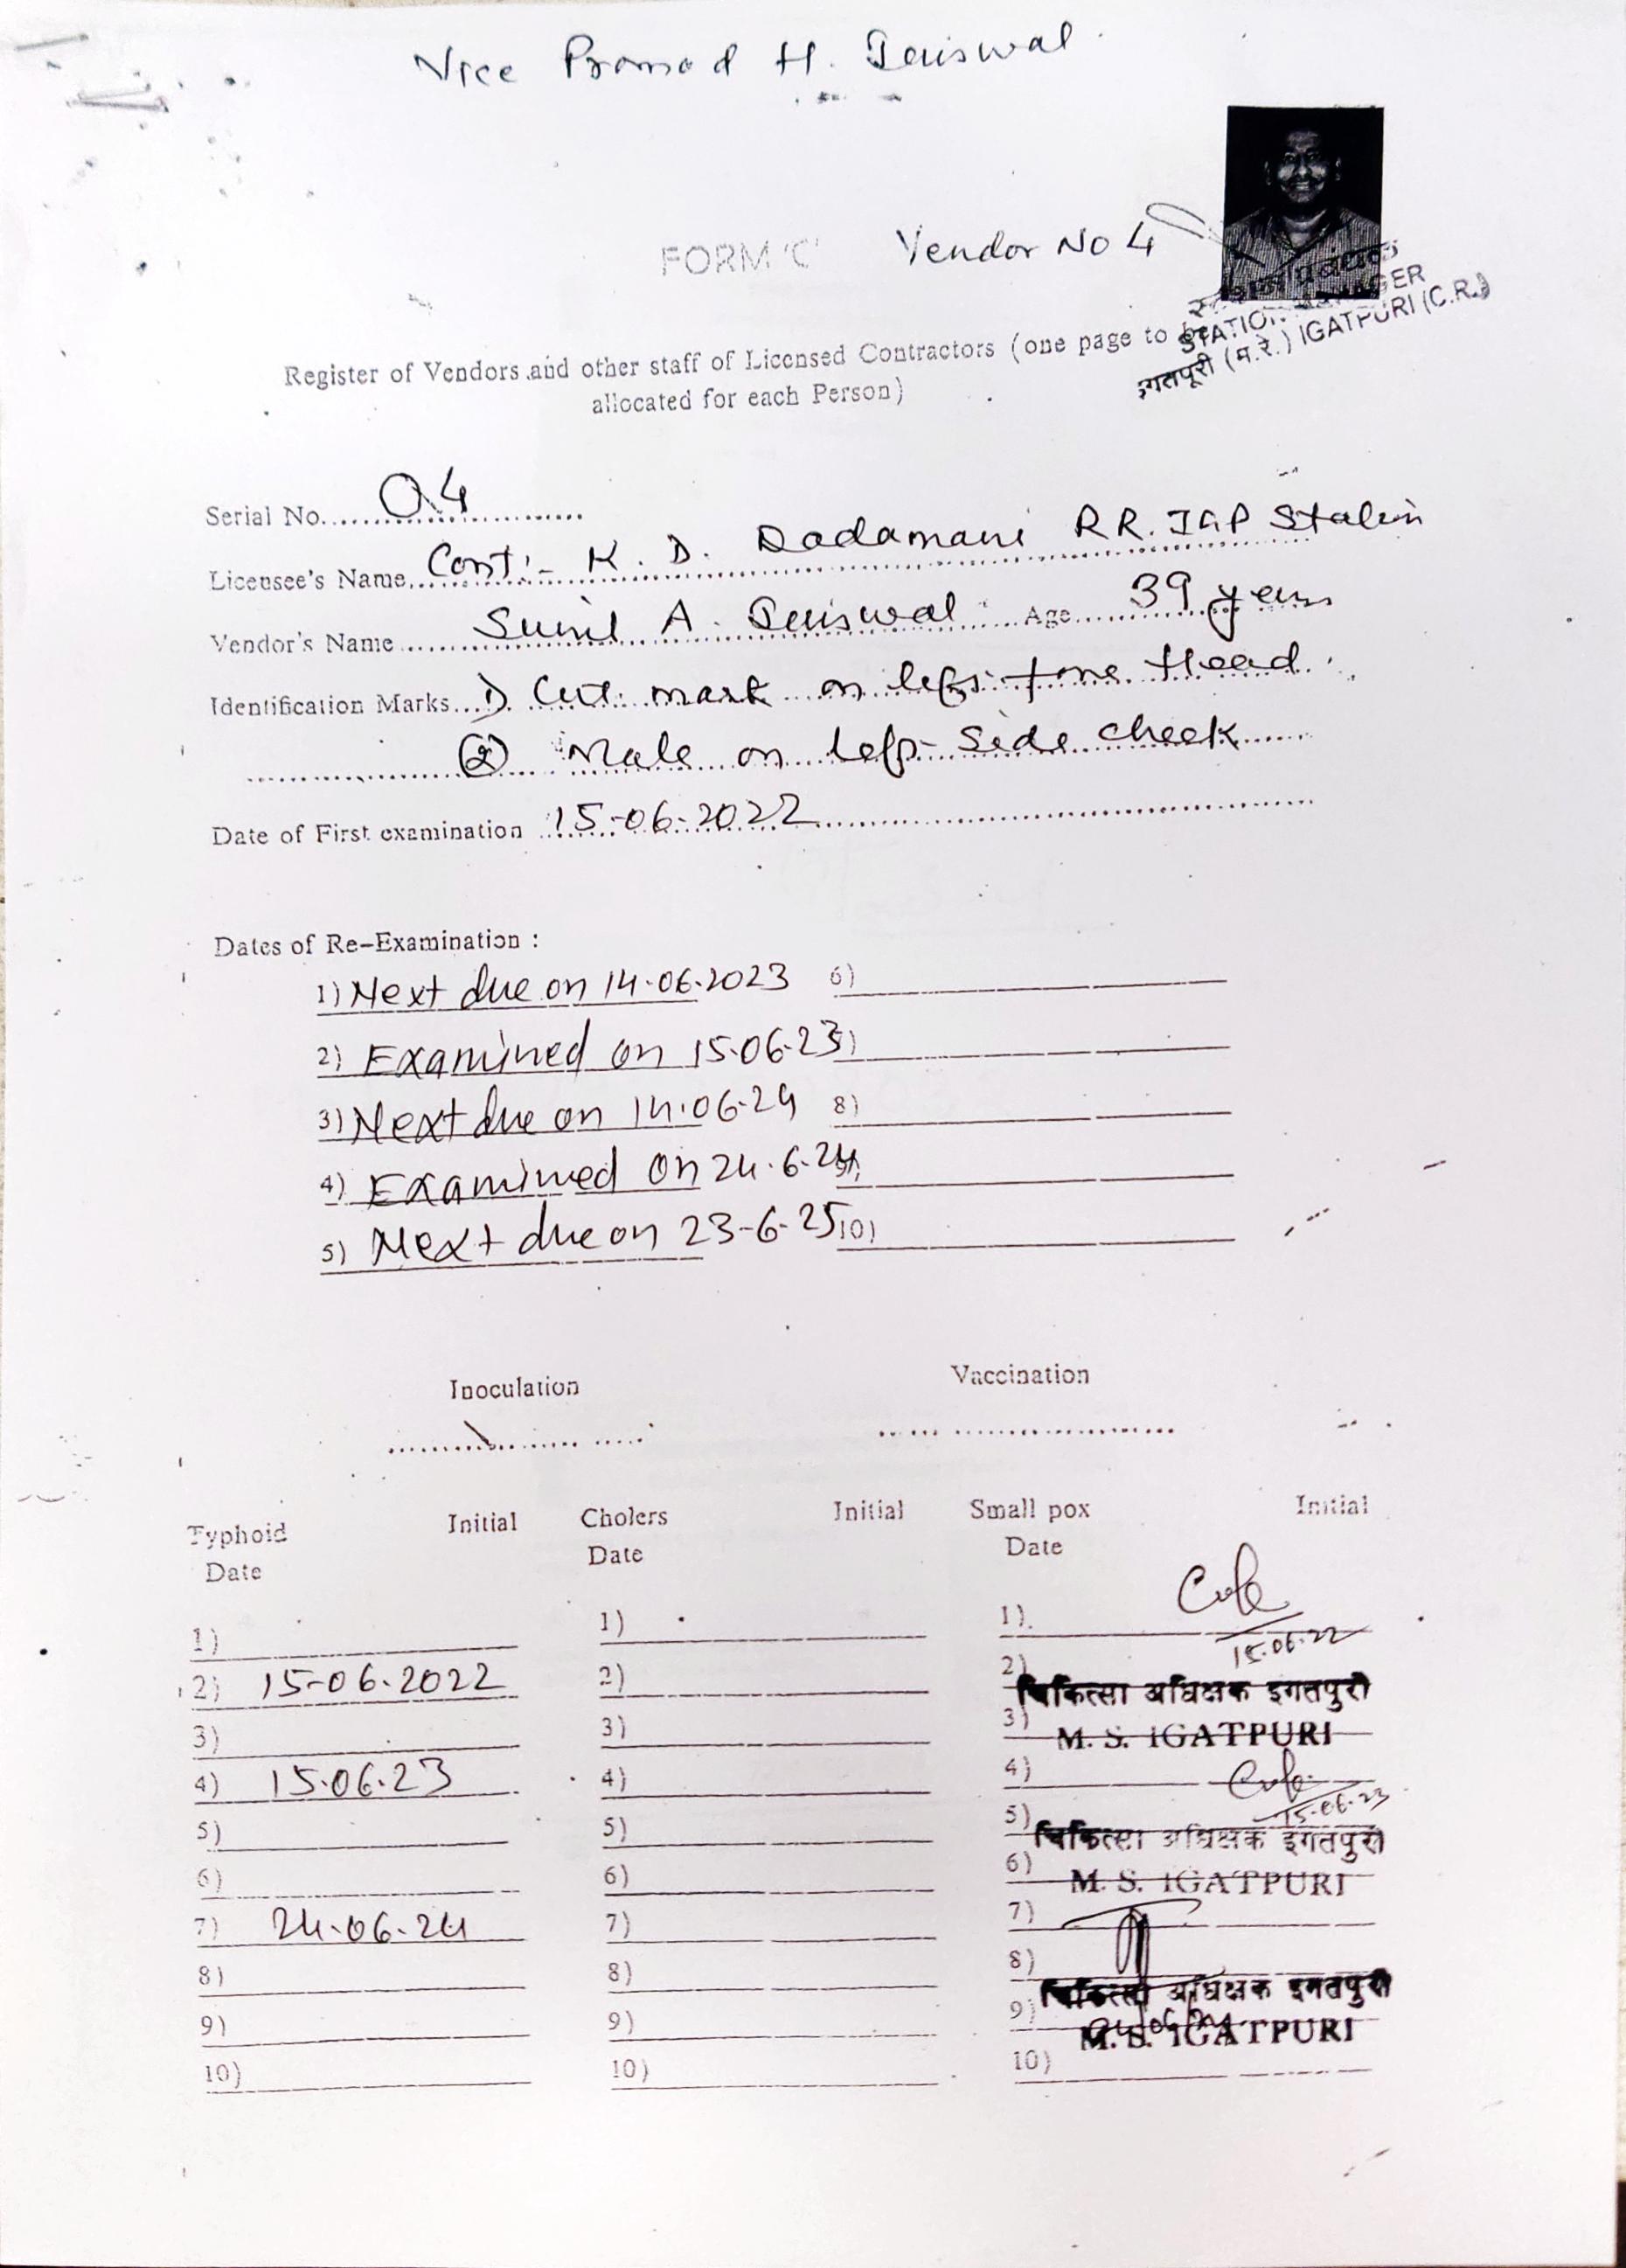 Vice Pramod H. Jaiswal
FORM 'C' Vendor No 4
स्टेशन प्रबंधक
STATION MANAGER
इगतपूरी (म.रे.) IGATPURI (C.R.)
Register of Vendors and other staff of Licensed Contractors (one page to be
allocated for each Person)
Serial No. 04
Licensee's Name Cont:- K. D. Dadamani RR. IGP Station
Vendor's Name Sunil A. Jaiswal Age 39 years
Identification Marks 1) Cut mark on left fore Head.
(2) Male on left side cheek
Date of First examination 15-06-2022
Dates of Re-Examination :
1) Next due on 14.06.2023 6)
2) Examined on 15.06.23 7)
3) Next due on 14.06.24 8)
4) Examined on 24.6.24 9)
5) Next due on 23-6-25 10)
Inoculation Vaccination
Typhoid Initial Cholers Initial Small pox Initial
Date Date Date
1) 1) 1)
15.06.22
2) 15-06.2022 2) 2)
चिकित्सा अधिक्षक इगतपुरी
3) 3) 3) M. S. IGATPURI
4) 15.06.23 4) 4)
15-06-23
5) 5) 5) चिकित्सा अधिक्षक इगतपुरी
6) 6) 6) M. S. IGATPURI
7) 24.06.24 7) 7)
8) 8) 8)
चिकित्सा अधिक्षक इगतपुरी
9) 9) 9) M. S. IGATPURI
10) 10) 10)